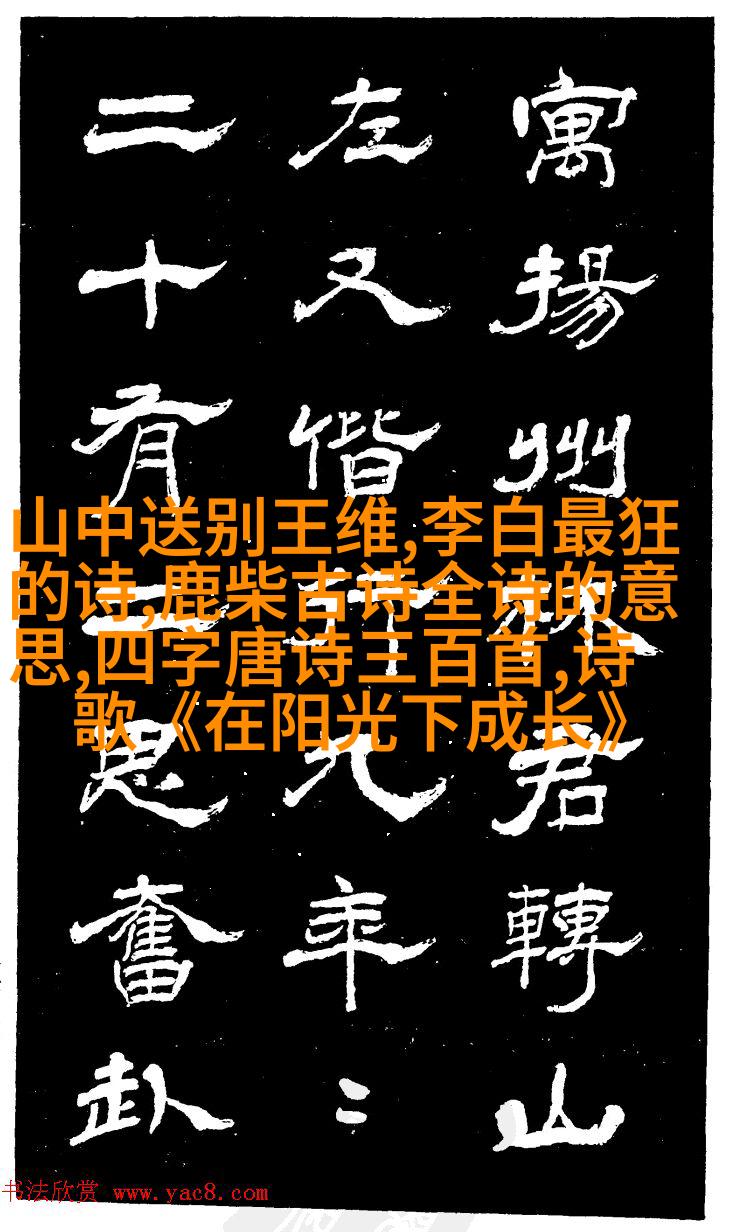 寓揚州林君轉山
左又偕行九年二
二十有思奮赴
山中送别王维,李白最狂
的诗,鹿柴古诗全诗的意
思,四字唐诗三百首,诗
歌《在阳光下成长》
书法欣赏 www.yac8.com